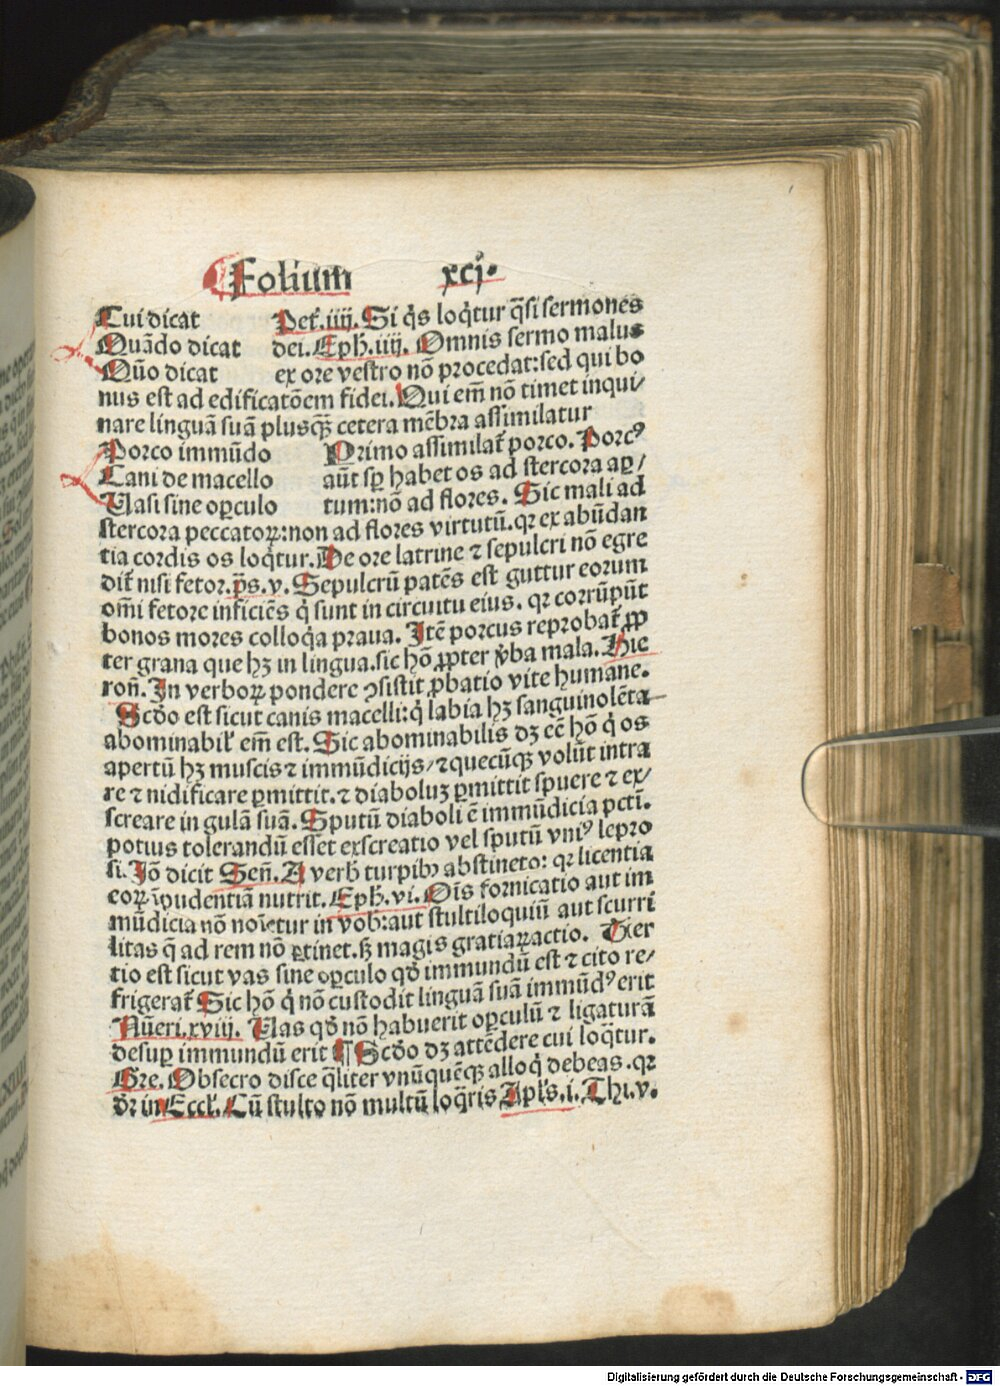 Folium xcj.
Cui dicat Pet̄.iiij. Si q̇s loq̇tur q̄si sermones
Quādo dicat dei. Eph.iiij. Omnis sermo malus
Quō dicat ex ore vestro nō procedat:sed qui bo
nus est ad edificatōem fidei. Qui em̄ nō timet inqui/
nare linguā suā plusq̄ꝫ cetera mēbra assimilatur
Porco immūdo Primo assimilat̄ porco. Porcꝰ
Cani de macello aūt sꝑ habet os ad stercora aꝑ/
Vasi sine oꝑculo tum:nō ad flores. Sic mali ad
stercora peccatoꝝ:non ad flores virtutū.qꝛ ex abūdan
tia cordis os loq̇tur. De ore latrine ⁊ sepulcri nō egre
dit̄ nisi fetor. p̄s.v. Sepulcrū patēs est guttur eorum
om̄i fetore inficiēs q̇ sunt in circuitu eius. qꝛ corrūpūt
bonos mores colloq̇a praua. Itē porcus reprobat̄ ꝓp
ter grana que hꝫ in lingua.sic hō ꝓpter v̇ba mala. Hie
roñ. In verboꝝ pondere ꝯsistit ꝓbatio vite humane.
Scd̄o est sicut canis macelli:q̇ labia hꝫ sanguinolēta
abominabil̓ em̄ est. Sic abominabilis dꝫ eē hō q̇ os
apertū hꝫ muscis ⁊ immūdicijs/⁊ quecūqꝫ volūt intra
re ⁊ nidificare ꝑmittit.⁊ diaboluꝫ ꝑmittit spuere ⁊ ex/
screare in gulā suā. Sputū diaboli ē immūdicia pcti̅.
potius tolerandū esset exscreatio vel sputū vniꝰ lepro
si. Iō dicit Señ. A verb̄ turpibꝫ abstineto: qꝛ licentia
eoꝝ īpudentiā nutrit. Eph.vi. Oīs fornicatio aut im
mūdicia nō noīetur in vob̄:aut stultiloquiū aut scurri
litas q̄ ad rem nō ꝑtinet.sꝫ magis gratiaꝝ actio. Ter
tio est sicut vas sine oꝑculo qd̄ immundū est ⁊ cito re/
frigerat̄ Sic hō q̇ nō custodit linguā suā immūdꝰ erit
Nūeri.xviij. Vas qd̄ nō habuerit oꝑculū ⁊ ligaturā
desuꝑ immundū erit ¶ Scd̄o dꝫ attēdere cui loq̇tur.
Gre. Obsecro disce q̄liter vnūquēqꝫ alloq̇ debeas.qꝛ
dr̄ in Eccl̓. Cū stulto nō multū loq̇ris Apl̓s.i.Thi.v.
Digitalisierung gefördert durch die Deutsche Forschungsgemeinschaft - DFG